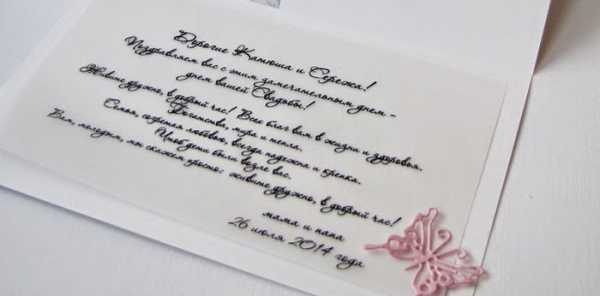 Дорогие Катюша и Сережа!
Поздравляем вас с этим замечательным днем -
днем вашей Свадьбы!
Живите дружно, в добрый час! Всех благ вам в жизни и здоровья.
Богатства, мира и тепла.
Семья, согрета любовью, всегда надежна и крепка.
Чтоб дети были возле вас.
Вам, молодым, мы скажем просто: живите дружно, в добрый час!
мама и папа
26 июля 2014 года